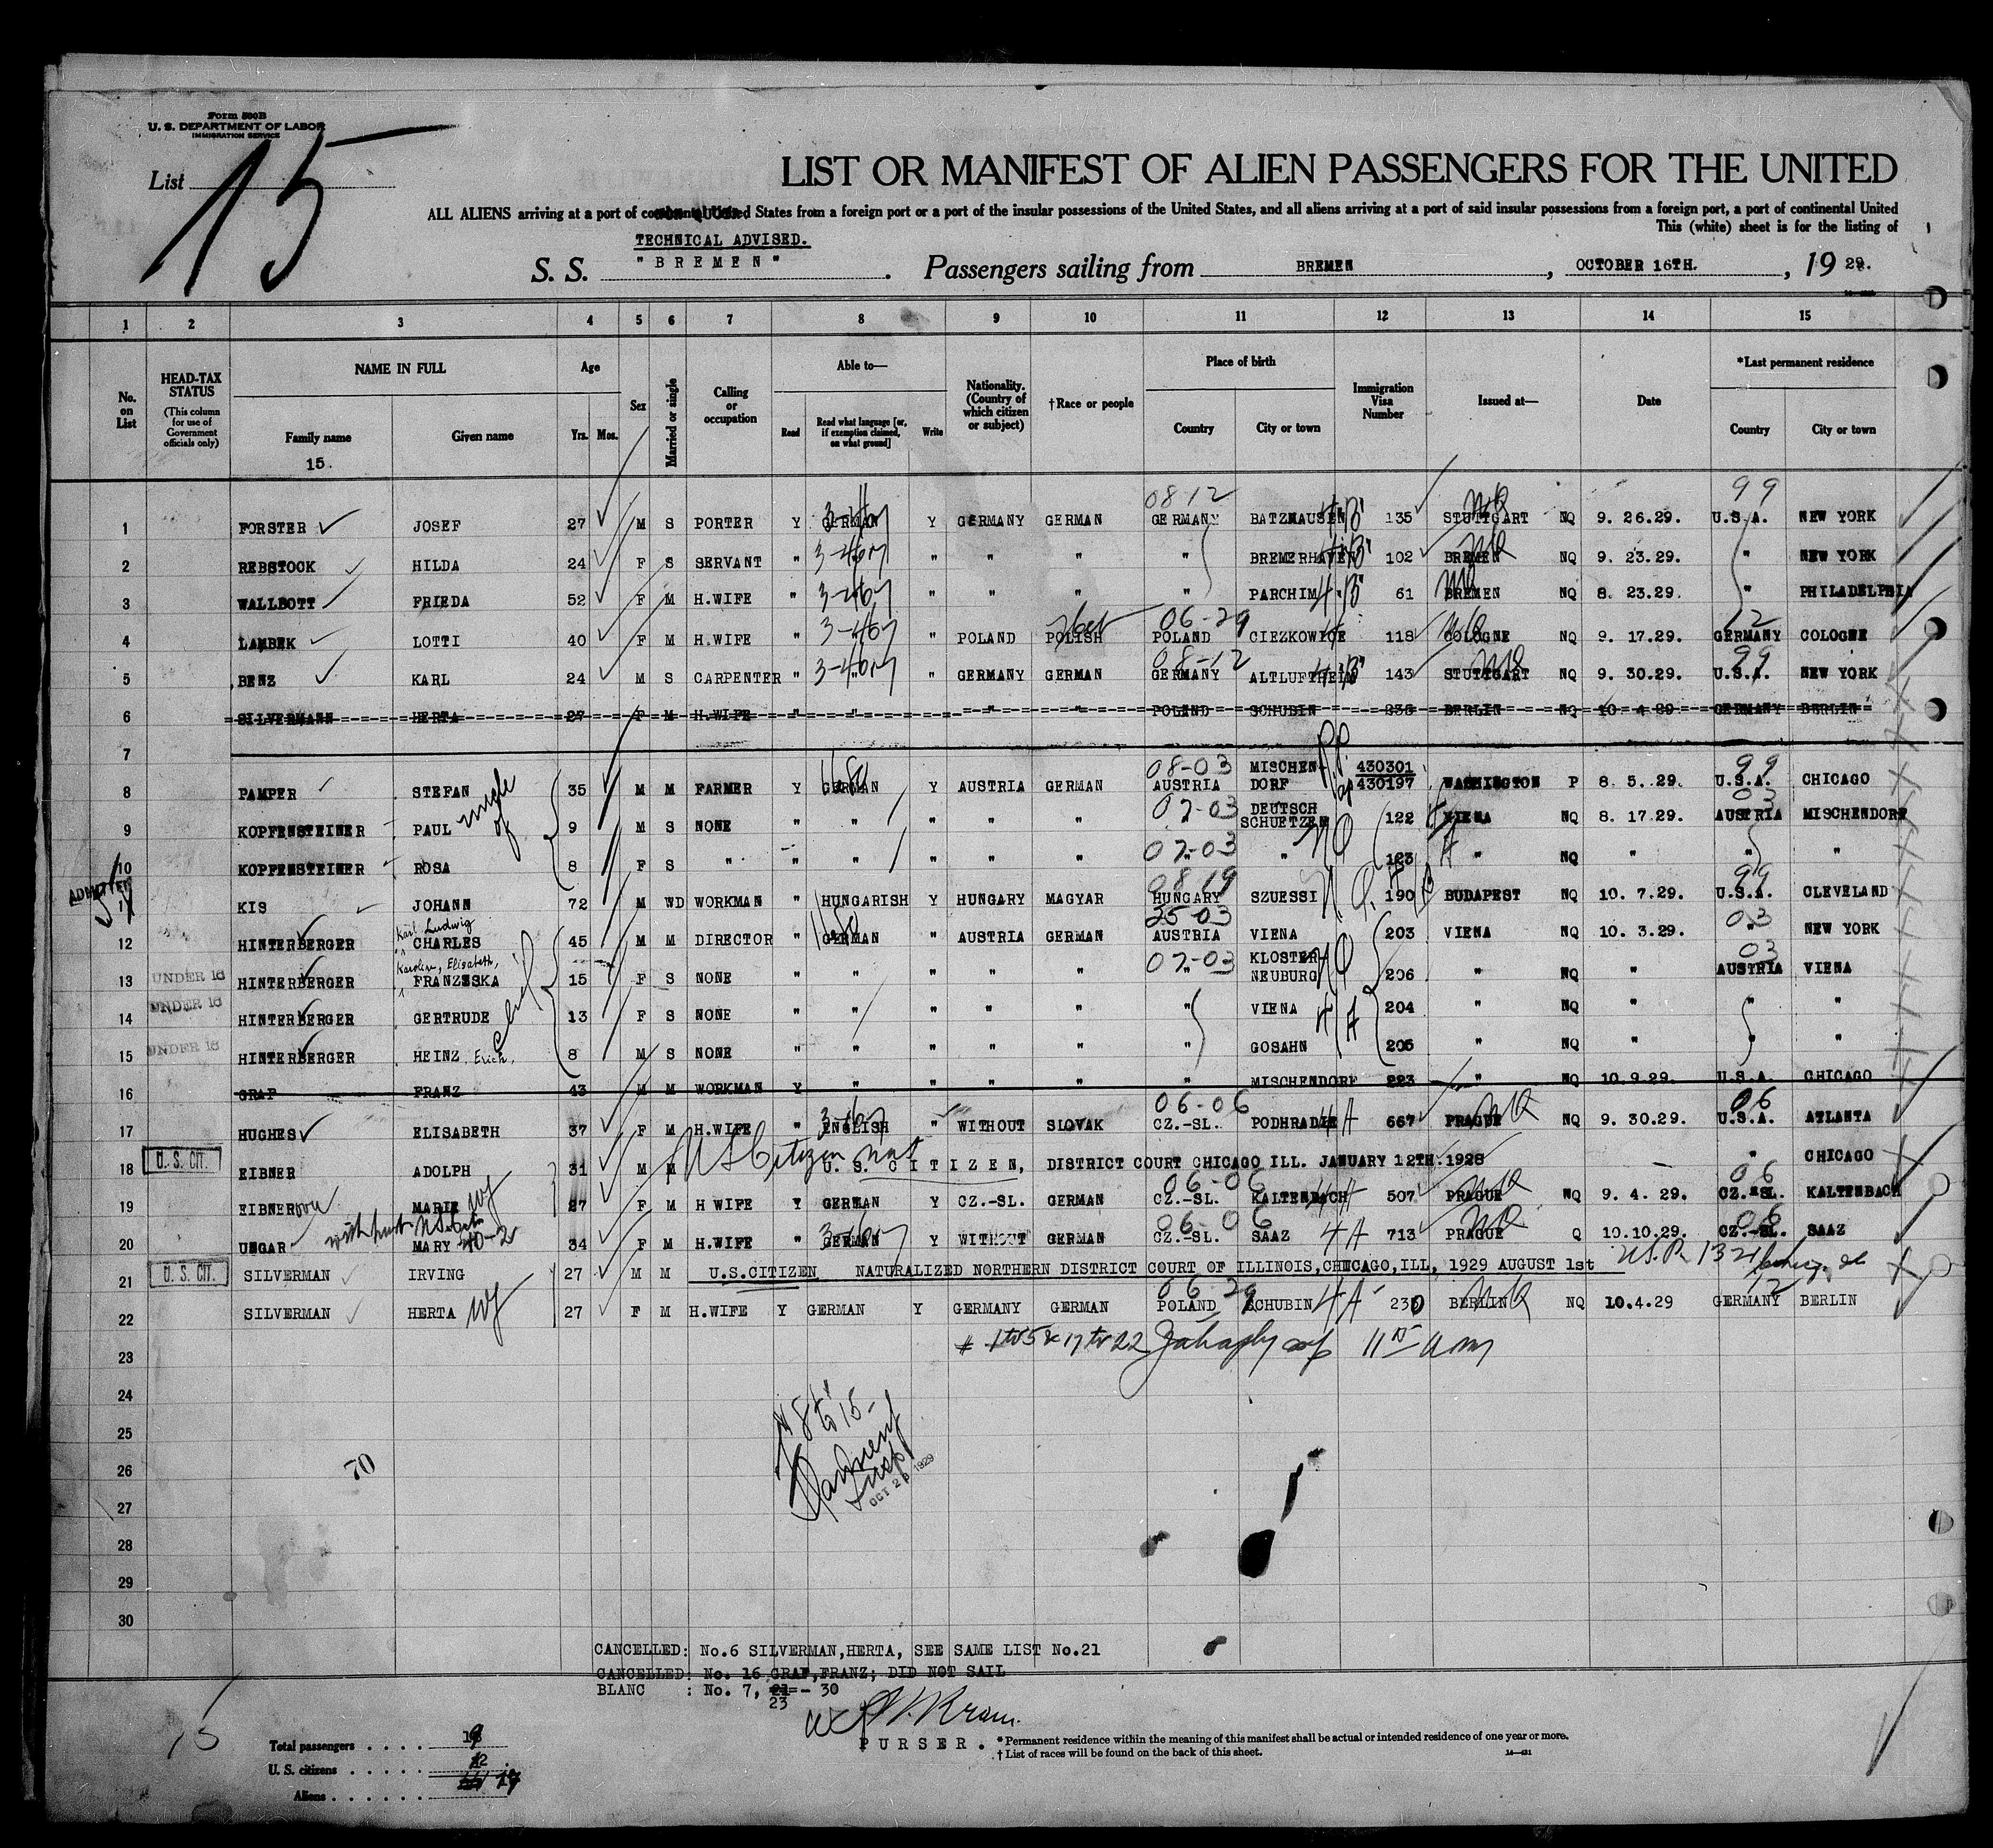 Form 500B
U. S. DEPARTMENT OF LABOR
IMMIGRATION SERVICE
List 15
LIST OR MANIFEST OF ALIEN PASSENGERS FOR THE UNITED
ALL ALIENS arriving at a port of continental United States from a foreign port or a port of the insular possessions of the United States, and all aliens arriving at a port of said insular possessions from a foreign port, a port of continental United
This (white) sheet is for the listing of
TECHNICAL ADVISED.
S. S. "BREMEN". Passengers sailing from BREMEN, OCTOBER 16TH., 1929.
1 2 3 4 5 6 7 8 9 10 11 12 13 14 15
No. on List
HEAD-TAX STATUS (This column for use of Government officials only)
NAME IN FULL Family name Given name
15.
Age Yrs. Mos.
Sex
Married or single
Calling or occupation
Able to— Read Read what language [or, if exemption claimed, on what ground] Write
Nationality. (Country of which citizen or subject)
†Race or people
Place of birth Country City or town
Immigration Visa Number
Issued at—
Date
*Last permanent residence Country City or town
08-12 99
1 FORSTER JOSEF 27 M S PORTER Y GERMAN Y GERMANY GERMAN GERMANY BATZHAUSEN 135 STUTTGART NQ 9. 26.29. U.S.A. NEW YORK
2 REBSTOCK HILDA 24 F S SERVANT " " " " " " BREMERHAVEN 102 BREMEN NQ 9. 23.29. " NEW YORK
3 WALLBOTT FRIEDA 52 F M H.WIFE " " " " " " PARCHIM 61 BREMEN NQ 8. 23.29. " PHILADELPHIA
06-29 12
4 LAMBEK LOTTI 40 F M H.WIFE " " " POLAND POLISH POLAND CIEZKOWICE 118 COLOGNE NQ 9. 17.29. GERMANY COLOGNE
08-12 99
5 BENZ KARL 24 M S CARPENTER " " " GERMANY GERMAN GERMANY ALTLUFTHEIM 143 STUTTGART NQ 9. 30.29. U.S.A. NEW YORK
6 SILVERMANN HERTA 27 F M H.WIFE " " " " POLAND SCHUBIN 236 BERLIN NQ 10. 4.29. GERMANY BERLIN
7
08-03 99
8 PAMPER STEFAN 35 M M FARMER Y GERMAN Y AUSTRIA GERMAN AUSTRIA MISCHENDORF 430301 430197 WASHINGTON P 8. 5. 29. U.S.A. CHICAGO
uncle of
07-03 03
9 KOPFENSTEINER PAUL 9 M S NONE " " " " " DEUTSCH SCHUETZEN 122 VIENA NQ 8. 17.29. AUSTRIA MISCHENDORF
07-03
10 KOPFENSTEINER ROSA 8 F S " " " " " " " " 123 " NQ " " "
ADMITTED
08 19 99
11 KIS JOHANN 72 M WD WORKMAN " HUNGARISH Y HUNGARY MAGYAR HUNGARY SZUESSI 190 BUDAPEST NQ 10. 7.29. U.S.A. CLEVELAND
Karl Ludwig 25-03 03
12 HINTERBERGER CHARLES 45 M M DIRECTOR " GERMAN " AUSTRIA GERMAN AUSTRIA VIENA 203 VIENA NQ 10. 3.29. " NEW YORK
Karolin, Elisabeth, 07-03 03
13 UNDER 16 HINTERBERGER FRANZESKA 15 F S NONE " " " " " " KLOSTER-NEUBURG 206 " NQ " AUSTRIA VIENA
14 UNDER 16 HINTERBERGER GERTRUDE 13 F S NONE " " " " " " VIENA 204 " NQ " " "
15 UNDER 16 HINTERBERGER HEINZ Erich, 8 M S NONE " " " " " " GOSAHN 205 " NQ " " "
16 GRAF FRANZ 43 M M WORKMAN Y " " " " " MISCHENDORF 223 " NQ 10.9.29. U.S.A. CHICAGO
06-06 06
17 HUGHES ELISABETH 37 F M H.WIFE " ENGLISH " WITHOUT SLOVAK CZ.-SL. PODHRADIE 4A 667 PRAGUE NQ 9. 30.29. U.S.A. ATLANTA
18 U. S. CIT. EIBNER ADOLPH 31 M M US Citizen nat U. S. CITIZEN, DISTRICT COURT CHICAGO ILL. JANUARY 12TH.1928 — " CHICAGO
06-06 06
19 EIBNEROVA MARIE wf 27 F M H WIFE Y GERMAN Y CZ.-SL. GERMAN CZ.-SL. KALTENBACH 4A 507 PRAGUE NQ 9. 4. 29. CZ.-SL. KALTENBACH
06-06 06
20 UNGAR MARY 34 F M H.WIFE " GERMAN Y WITHOUT GERMAN CZ.-SL. SAAZ 4A 713 PRAGUE Q 10.10.29. CZ.-SL. SAAZ
21 U. S. CIT. SILVERMAN IRVING 27 M M U.S.CITIZEN NATURALIZED NORTHERN DISTRICT COURT OF ILLINOIS,CHICAGO,ILL, 1929 AUGUST 1st
06 29 12
22 SILVERMAN HERTA wf 27 F M H.WIFE Y GERMAN Y GERMANY GERMAN POLAND SCHUBIN 4A 230 BERLIN NQ 10.4.29 GERMANY BERLIN
23 # 1 to 5 & 17 to 22
24
# 8 to 15-
25
26
70
OCT 2 1929
27
28
29
30
CANCELLED: No.6 SILVERMAN,HERTA, SEE SAME LIST No.21
CANCELLED: No. 16 GRAF,FRANZ; DID NOT SAIL
BLANC : No. 7, 21 - 30
23
15
PURSER.
*Permanent residence within the meaning of this manifest shall be actual or intended residence of one year or more.
† List of races will be found on the back of this sheet.
Total passengers . . . . 19
U. S. citizens . . . . . 2
Aliens . . . . . . 17